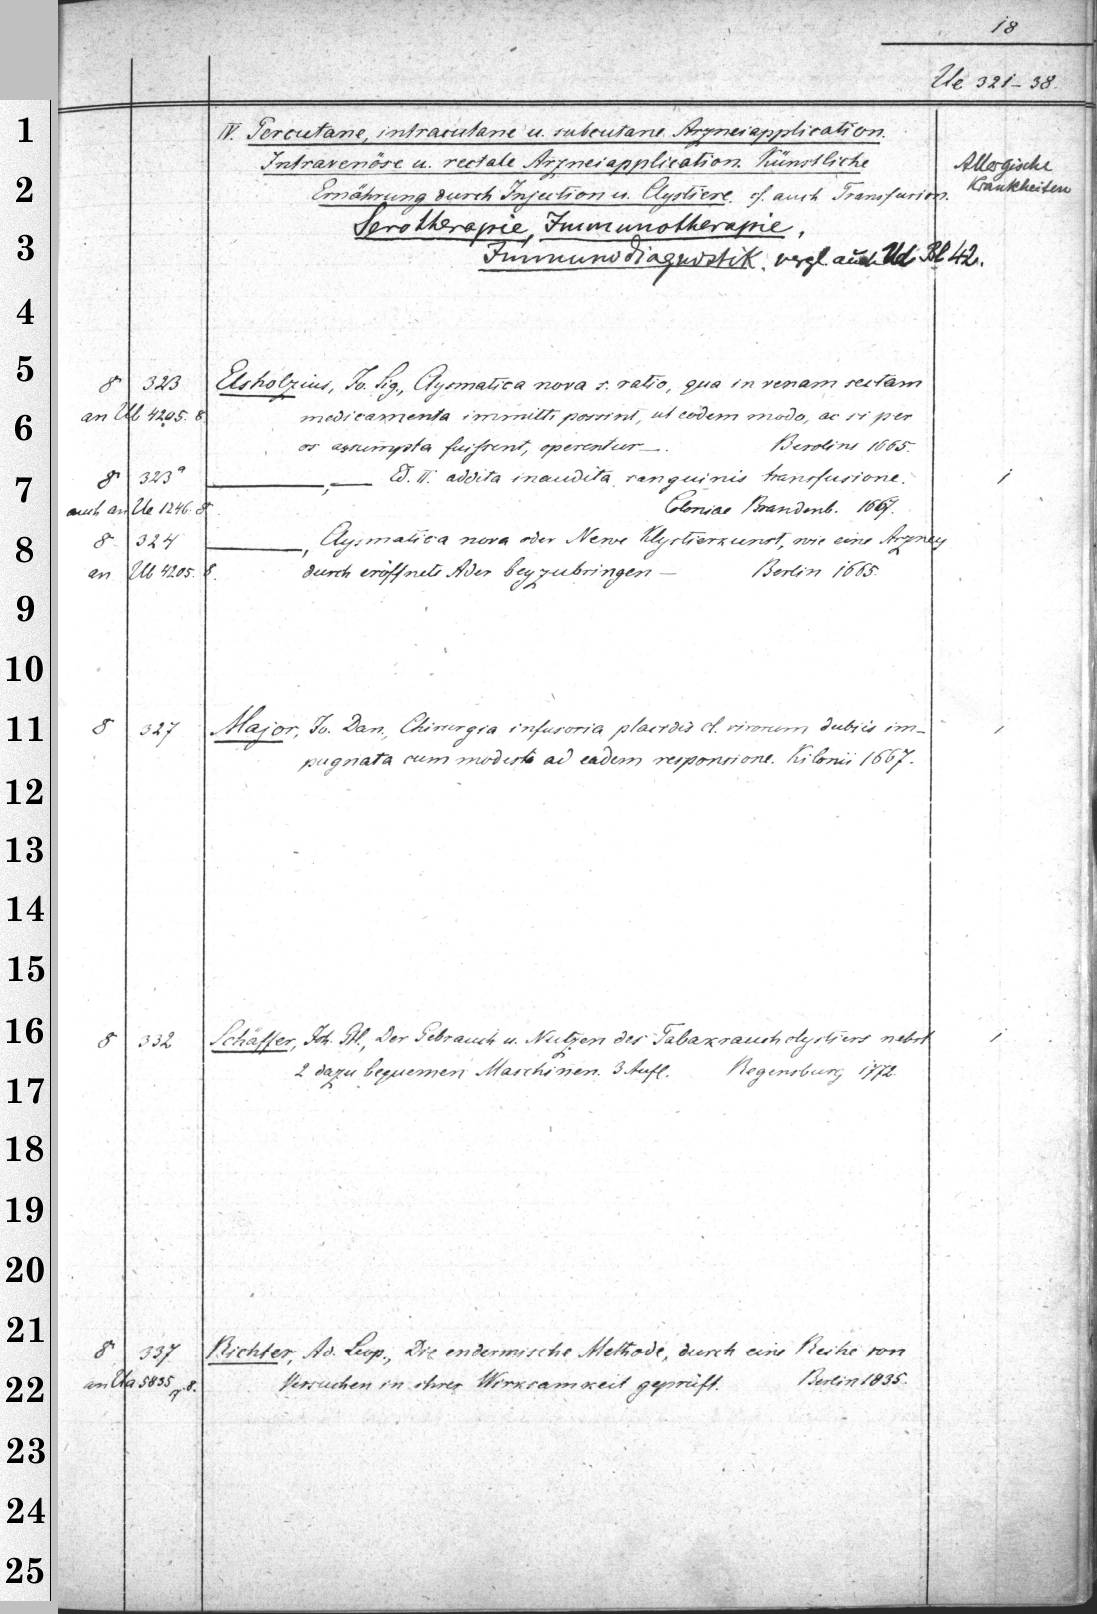 18
Ue 321-38.
1
2
3
4
5
6
7
8
9
10
11
12
13
14
15
16
17
18
19
20
21
22
23
24
25
IV. Percutane, intracutane u. subcutane Arzneiapplication.
Intravenöse u. rectale Arzneiapplication. Künstliche
Ernährung durch Injection u. Clystiere. cf. auch Transfusion.
Serotherapie, Immunotherapie,
Immunodiagnostik. vergl. auch Ud Bl 42.
Allergische
Krankheiten
8 323 Elsholzius, Jo. Sig., Clysmatica nova s. ratio, qua in venam sectam
an Ub 4205. 8. medicamenta immitti possint, ut eodem modo, ac si per
os assumpta fuissent, operentur —. Berolini 1665.
8 323a —, — Ed. II. addita inaudita sanguinis transfusione. 1
auch an Ue 1246. 8. Coloniae Brandenb. 1667.
8 324 —, Clysmatica nova oder Newe Klystierkunst, wie eine Arzney
an Ub 4205. 8. durch eröffnete Ader beyzubringen — Berlin 1665.
8 327 Major, Jo. Dan., Chirurgia infusoria placidis cl. virorum dubiis im- 1
pugnata cum modesta ad eadem responsione. Kilonii 1667.
8 332 Schäffer, Joh. Gtl., Der Gebrauch u. Nutzen des Tabakrauchclystiers nebst 1
2 dazu bequemen Maschinen. 3 Aufl. Regensburg 1772
8 337 Richter, Ad. Leop., Die endermische Methode, durch eine Reihe von
an Ua 5835 8. Versuchen in ihrer Wirksamkeit geprüft. Berlin 1835.